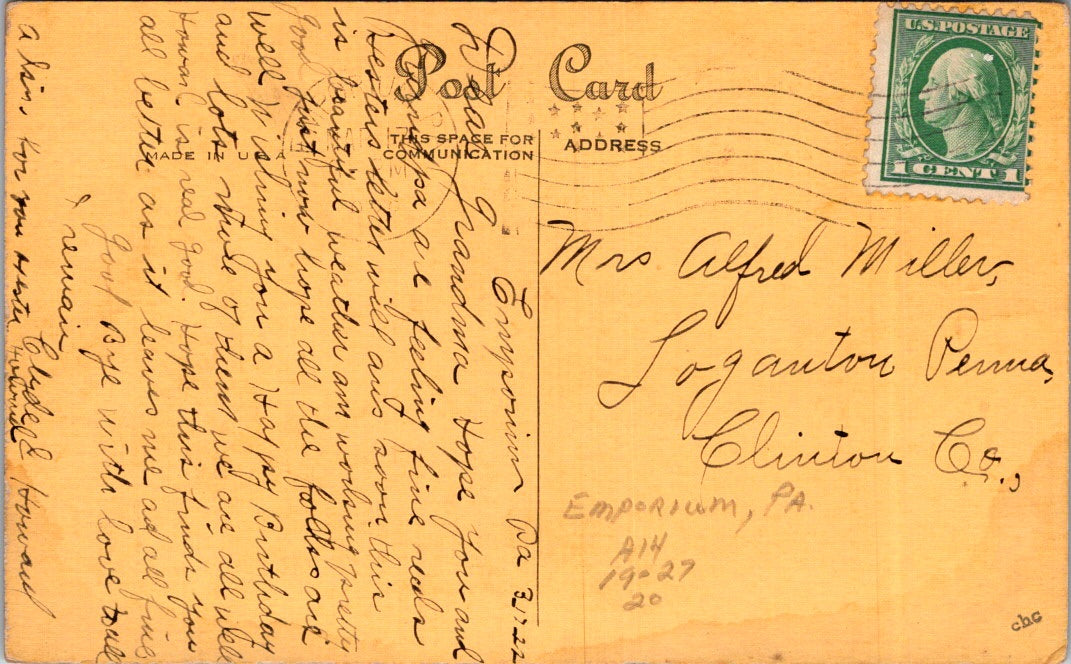 Post Card
THIS SPACE FOR
COMMUNICATION
ADDRESS
MADE IN U.S.A
U.S. POSTAGE
1 CENT 1
Emporium Pa 3-17-22
Dear Grandma Hope you and
Grandpa are feeling fine recd
Hesters letter will ans soon this
is beautiful weather am working pretty
good just now hope all the folks are
well Wishing you a Happy Birthday
and lots more of them we are all well
Howard is real good. Hope this finds you
all better as it leaves me and all fine
Good Bye with love
I remain
Clydell Howard
a kiss for you
Mrs Alfred Miller,
Loganton Penna,
Clinton Co.,
EMPORIUM, PA.
A14
19-27
20
chc